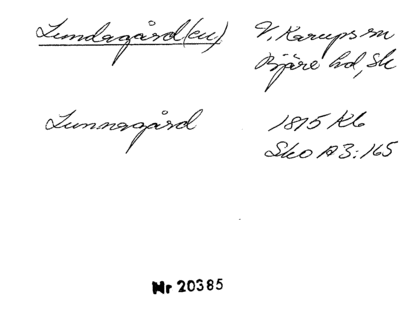 Lundagård(en.) V. Karups sn
Bjäre hd, Sk
Lunnagård 1815 Kb
Sko A3:165
Nr 20385